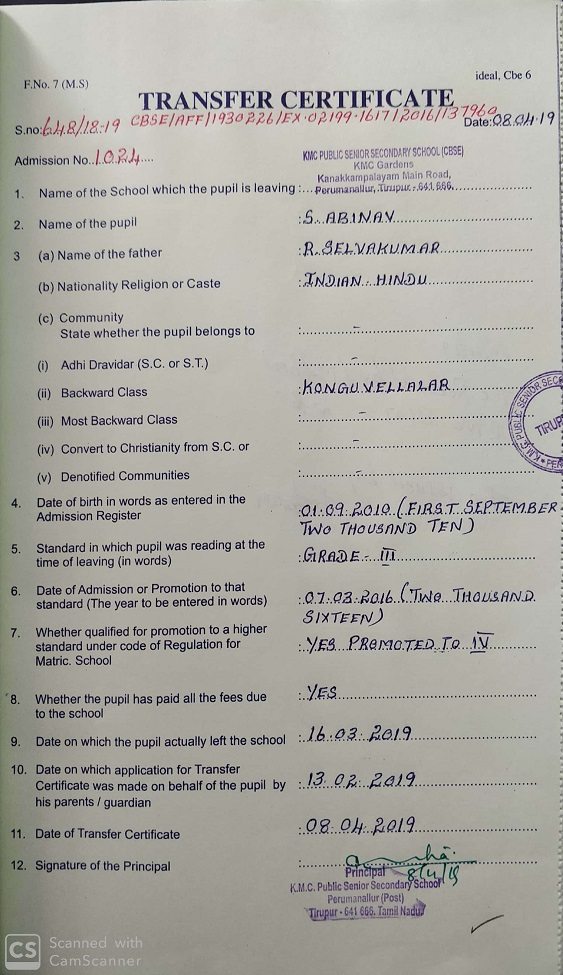 F.No. 7 (M.S)
ideal, Cbe 6
TRANSFER CERTIFICATE
S.no:648/18-19 CBSE/AFF/1930226/EX-02199-1617/2016/137960 Date:08.04.19
Admission No..1024....
KMC PUBLIC SENIOR SECONDARY SCHOOL (CBSE)
KMC Gardens
Kanakkampalayam Main Road,
1. Name of the School which the pupil is leaving :... Perumanallur, Tirupur - 641 666.
2. Name of the pupil : S. ABINAV
3 (a) Name of the father : R. SELVAKUMAR
(b) Nationality Religion or Caste : INDIAN HINDU
(c) Community
State whether the pupil belongs to : -
(i) Adhi Dravidar (S.C. or S.T.) : -
(ii) Backward Class : KONGU VELLALAR
(iii) Most Backward Class : -
(iv) Convert to Christianity from S.C. or : -
(v) Denotified Communities : -
K.M.C. PUBLIC SENIOR SEC
TIRUP
4. Date of birth in words as entered in the
Admission Register : 01.09.2010 (FIRST SEPTEMBER
TWO THOUSAND TEN)
5. Standard in which pupil was reading at the
time of leaving (in words) : GRADE - III
6. Date of Admission or Promotion to that
standard (The year to be entered in words) : 07.03.2016 (TWO THOUSAND
SIXTEEN)
7. Whether qualified for promotion to a higher
standard under code of Regulation for : YES PROMOTED TO IV
Matric. School
8. Whether the pupil has paid all the fees due : YES
to the school
9. Date on which the pupil actually left the school : 16.03.2019
10. Date on which application for Transfer
Certificate was made on behalf of the pupil by : 13.02.2019
his parents / guardian
11. Date of Transfer Certificate : 08.04.2019
12. Signature of the Principal :
Principal 8/4/19
K.M.C. Public Senior Secondary School
Perumanallur (Post)
Tirupur - 641 666. Tamil Nadu
CS Scanned with
CamScanner